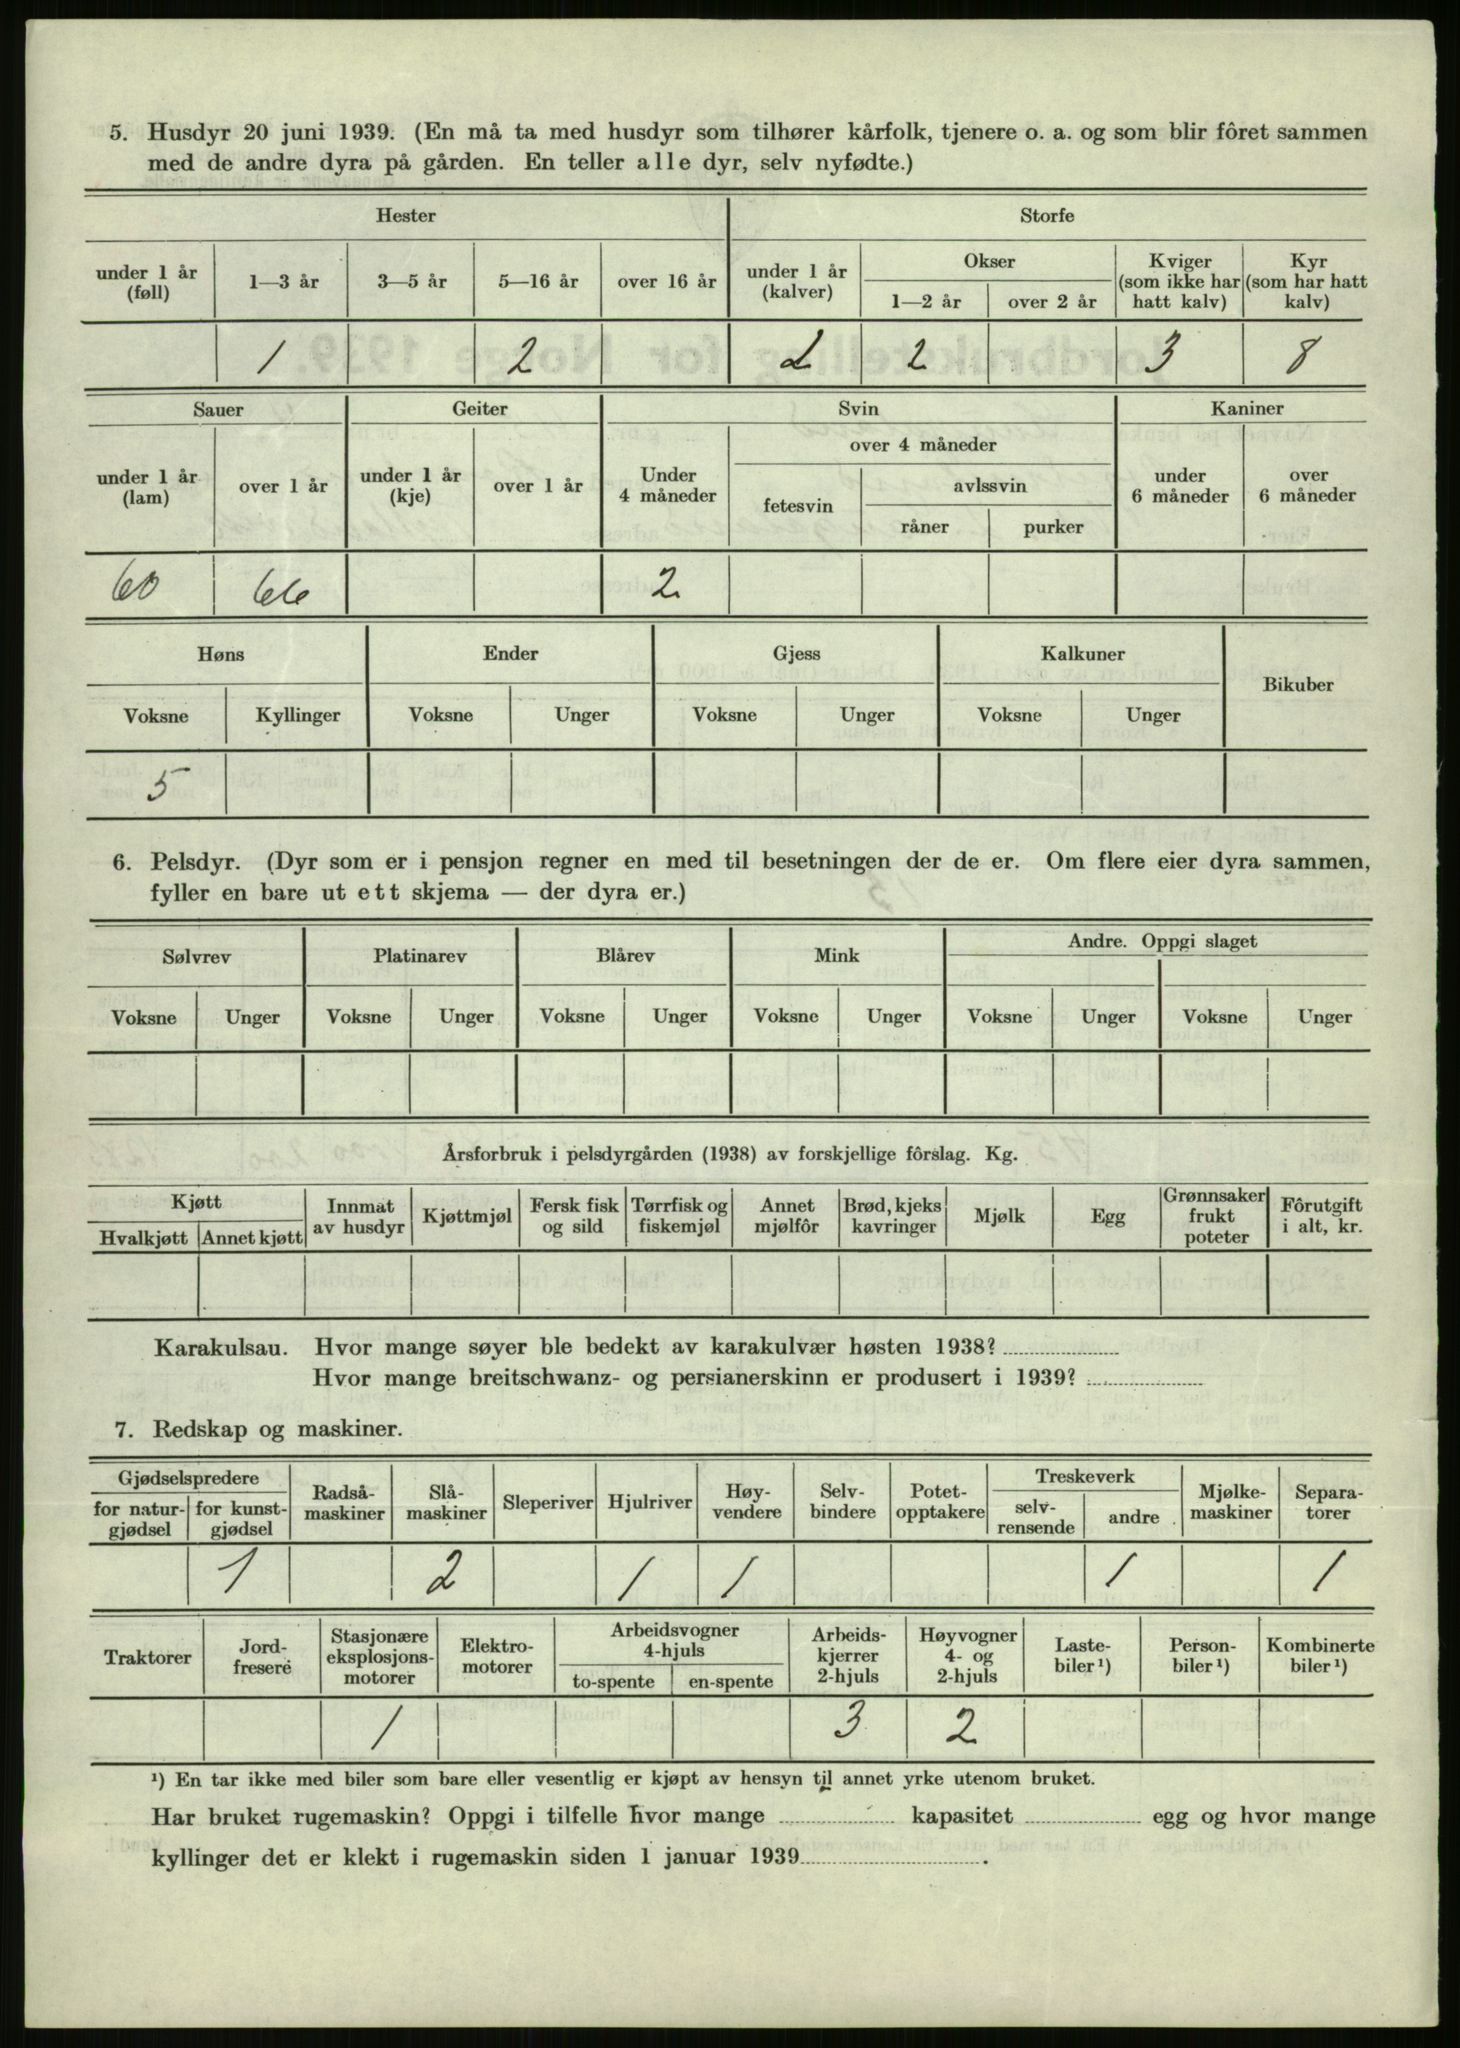 5. Husdyr 20 juni 1939. (En må ta med husdyr som tilhører kårfolk, tjenere o. a. og som blir fôret sammen
med de andre dyra på gården. En teller alle dyr, selv nyfødte.)
Hester Storfe
under 1 år (føll) 1—3 år 3—5 år 5—16 år over 16 år under 1 år (kalver) Okser 1—2 år over 2 år Kviger (som ikke har hatt kalv) Kyr (som har hatt kalv)
1 2 2 2 3 8
Sauer Geiter Svin Kaniner
under 1 år (lam) over 1 år under 1 år (kje) over 1 år Under 4 måneder over 4 måneder fetesvin avlssvin råner purker under 6 måneder over 6 måneder
60 66 2
Høns Ender Gjess Kalkuner Bikuber
Voksne Kyllinger Voksne Unger Voksne Unger Voksne Unger
5
6. Pelsdyr. (Dyr som er i pensjon regner en med til besetningen der de er. Om flere eier dyra sammen,
fyller en bare ut ett skjema — der dyra er.)
Sølvrev Platinarev Blårev Mink Andre. Oppgi slaget
Voksne Unger Voksne Unger Voksne Unger Voksne Unger Voksne Unger Voksne Unger
Årsforbruk i pelsdyrgården (1938) av forskjellige fôrslag. Kg.
Kjøtt Hvalkjøtt Annet kjøtt Innmat av husdyr Kjøttmjøl Fersk fisk og sild Tørrfisk og fiskemjøl Annet mjølfôr Brød, kjeks kavringer Mjølk Egg Grønnsaker frukt poteter Fôrutgift i alt, kr.
Karakulsau. Hvor mange søyer ble bedekt av karakulvær høsten 1938?
Hvor mange breitschwanz- og persianerskinn er produsert i 1939?
7. Redskap og maskiner.
Gjødselspredere for natur-gjødsel for kunst-gjødsel Radså-maskiner Slå-maskiner Sleperiver Hjulriver Høy-vendere Selv-bindere Potet-opptakere Treskeverk selv-rensende andre Mjølke-maskiner Separa-torer
1 2 1 1 1 1
Traktorer Jord-fresere Stasjonære eksplosjons-motorer Elektro-motorer Arbeidsvogner 4-hjuls to-spente en-spente Arbeids-kjerrer 2-hjuls Høyvogner 4- og 2-hjuls Laste-biler ¹) Person-biler ¹) Kombinerte biler ¹)
1 3 2
¹) En tar ikke med biler som bare eller vesentlig er kjøpt av hensyn til annet yrke utenom bruket.
Har bruket rugemaskin? Oppgi i tilfelle hvor mange kapasitet egg og hvor mange
kyllinger det er klekt i rugemaskin siden 1 januar 1939 .